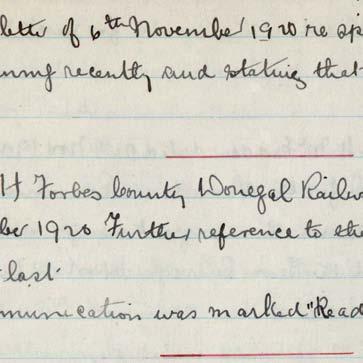 letter of 6th November 1920 re sp
recently and stating that
H Forbes County Donegal Railw
ber 1920 Further reference to the
last
mmunication was marked "Read